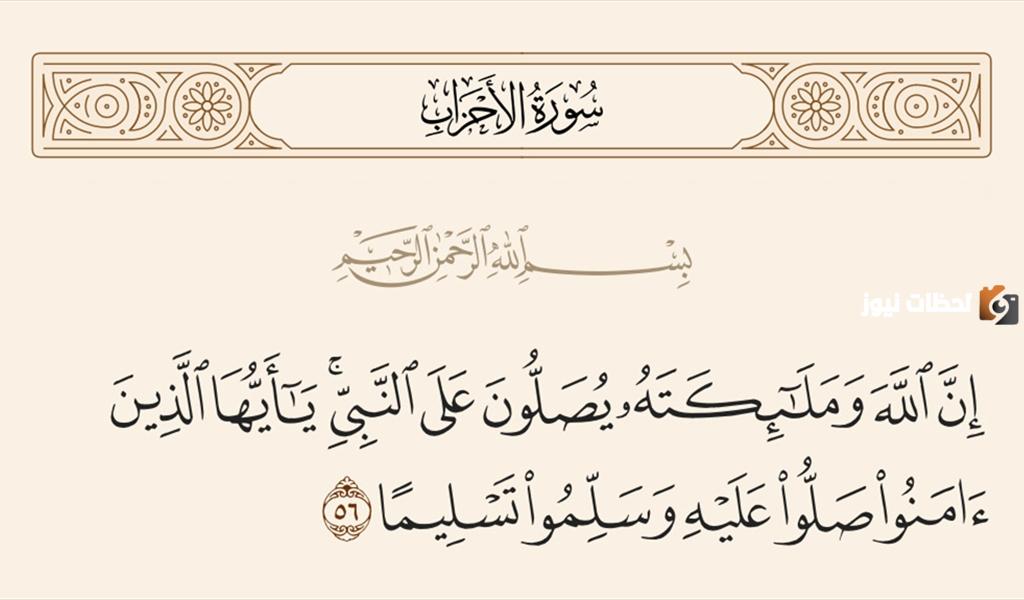 سُورَةُ الأَحْزَابِ
بِسْمِ ٱللَّهِ ٱلرَّحْمَٰنِ ٱلرَّحِيمِ
لحظات نيوز
إِنَّ ٱللَّهَ وَمَلَٰٓئِكَتَهُۥ يُصَلُّونَ عَلَى ٱلنَّبِيِّۚ يَٰٓأَيُّهَا ٱلَّذِينَ
ءَامَنُوا۟ صَلُّوا۟ عَلَيْهِ وَسَلِّمُوا۟ تَسْلِيمًا ٥٦